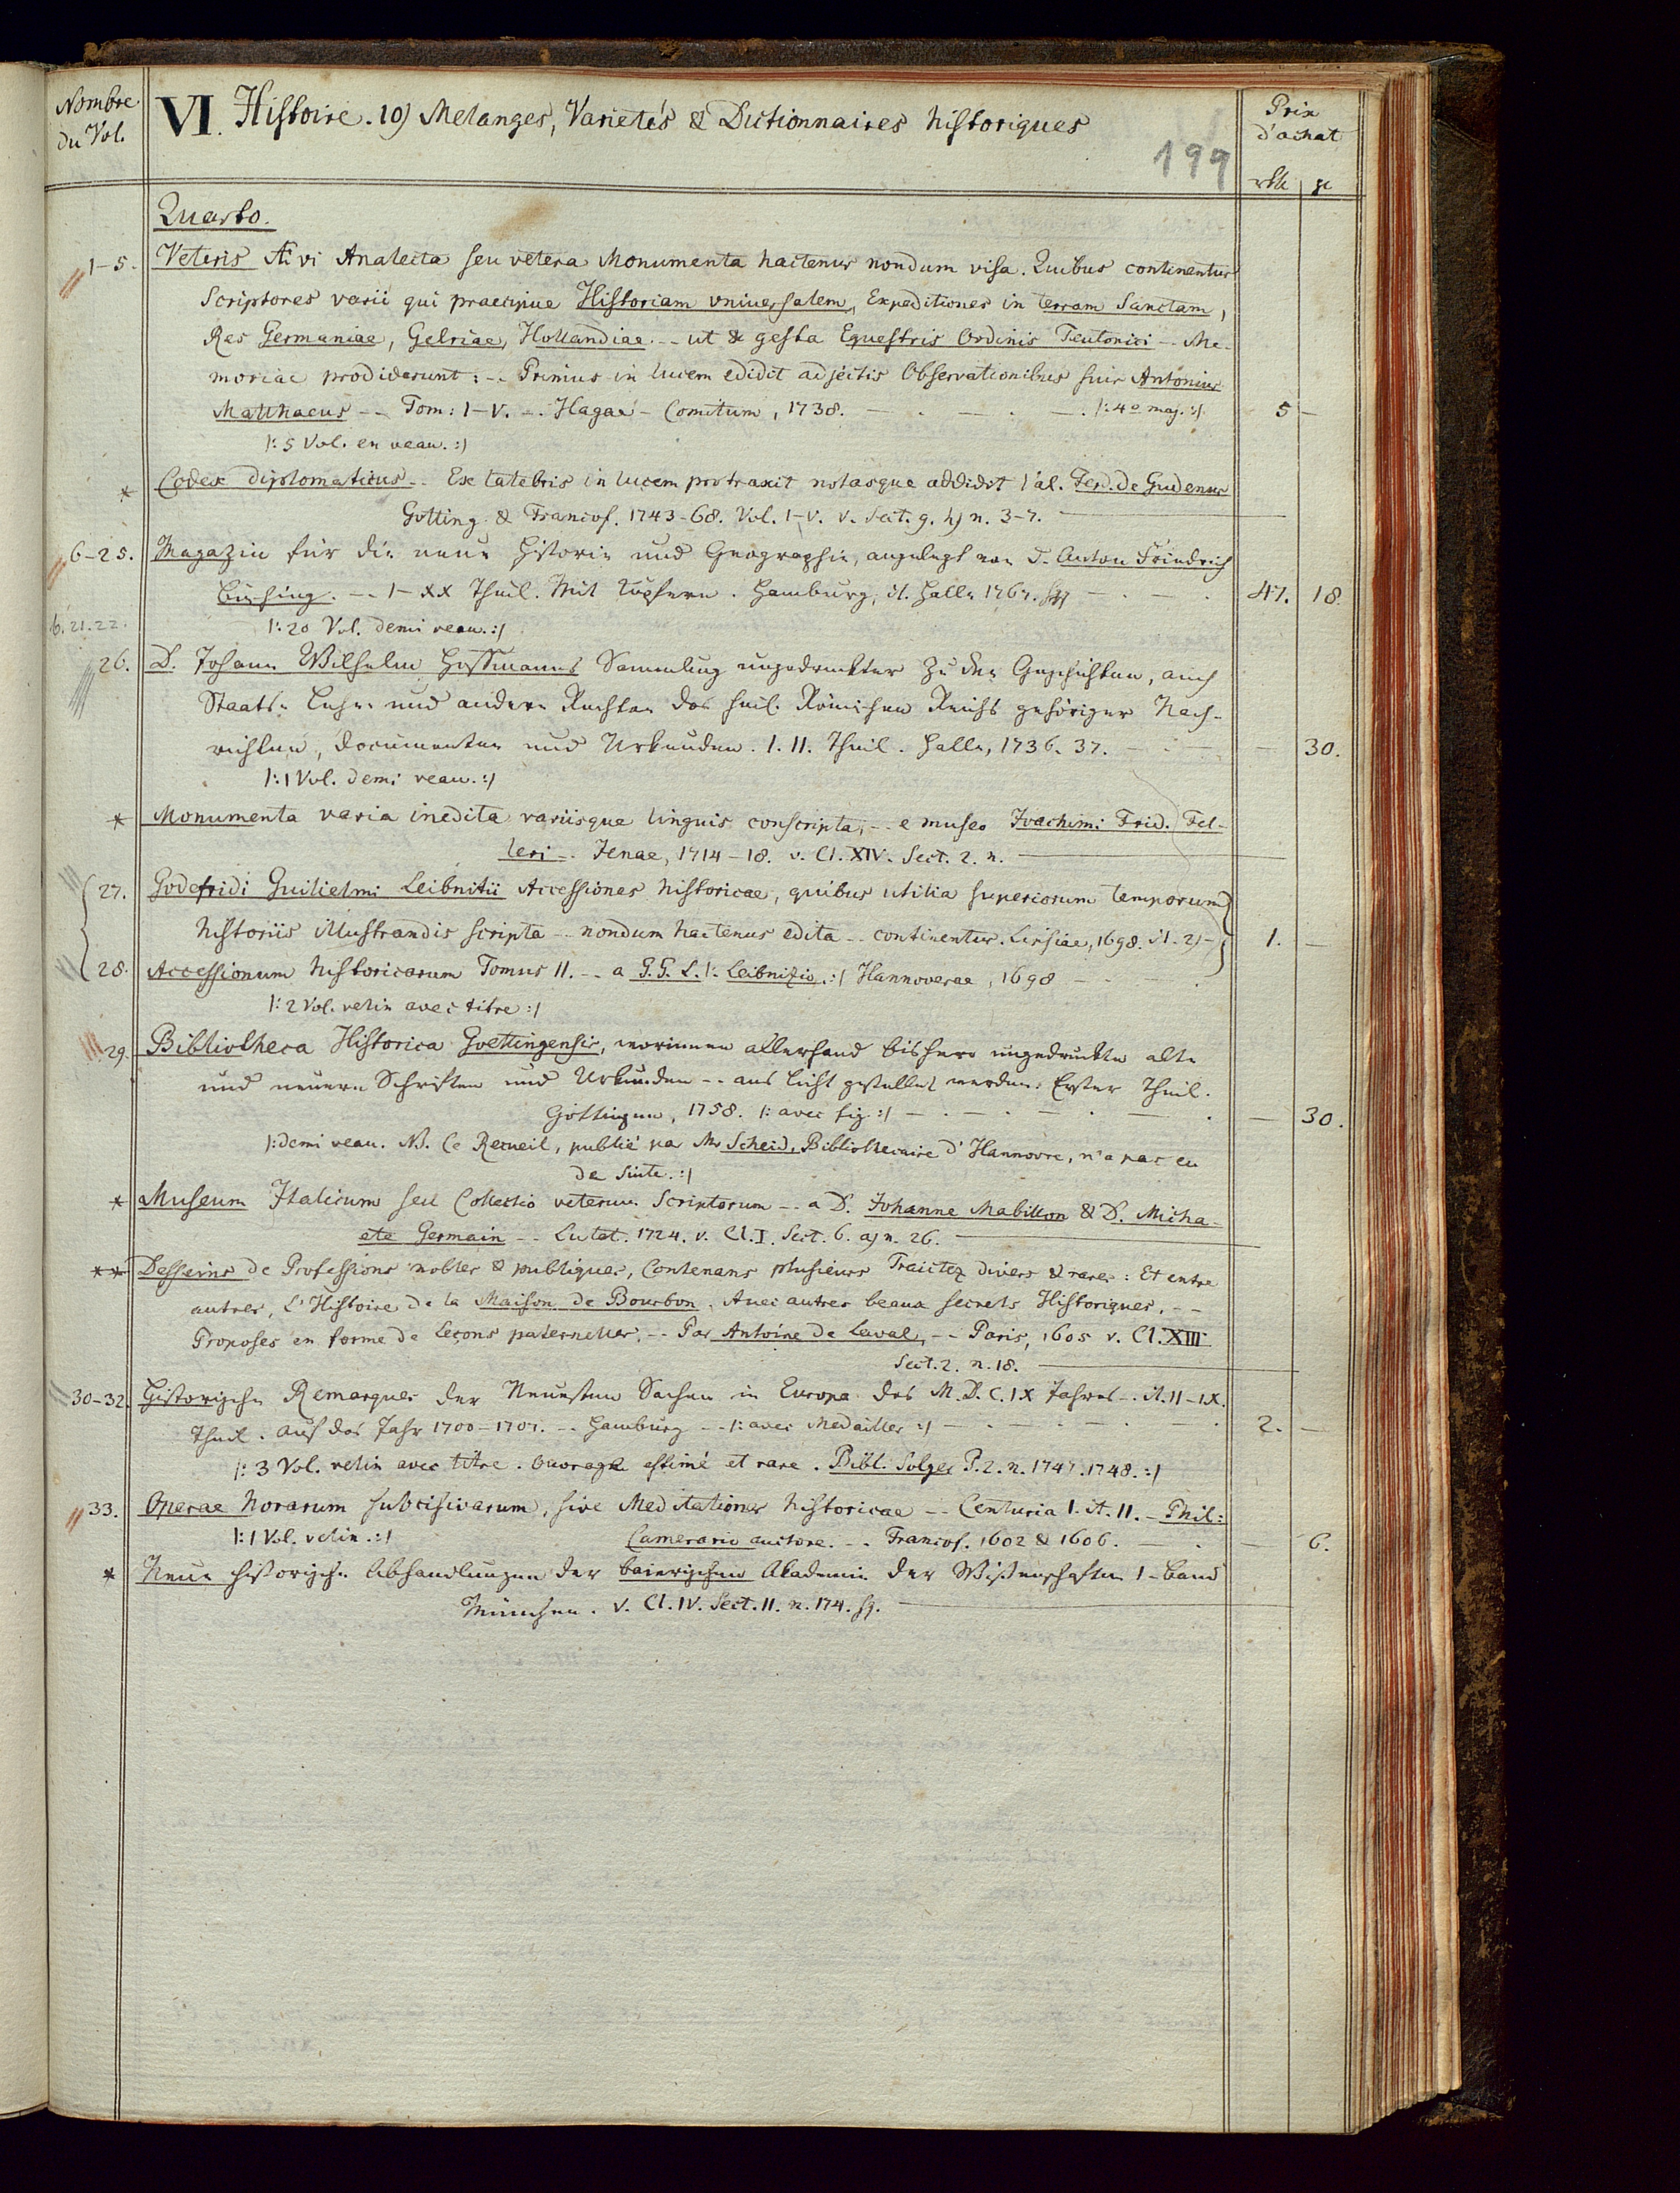 Nombre du Vol.
VI. Histoire. 10) Melanges, Varietés & Dictionnaires historiques
Prix d'achat
199
rth gr
Quarto.
1-5. Veteris Ævi Analecta seu vetera Monumenta hactenus nondum visa. Quibus continentur
Scriptores varii qui praecipue Historiam vniuersalem, Expeditiones in terram Sanctam,
Res Germaniae, Gelriae, Hollandiae -- ut & gesta Equestris Ordinis Teutonici -- Me-
moriae prodiderunt: -- Primus in lucem edidit adjectis Observationibus suis Antonius
Matthaeus -- Tom: I-V. -- Hagae-Comitum, 1738. - . - . - . |: 4º maj. :| 5 -
|: 5 Vol. en veau. :|
* Codex diplomaticus -- Ex latebris in lucem protraxit notasque addidit Val. Ferd. de Gudenus
Gotting. & Francof. 1743-68. Vol. I-V. v. Sect. 9. h) n. 3-7.
6-25. Magazin für die neue Historie und Geographie, angelegt von D. Anton Friedrich
Büsching. -- I-XX Theil. Mit Kupfern. Hamburg, it. Halle 1767. sqq - . - . 47. 18.
6. 21. 22. |: 20 Vol. demi veau. :|
26. D. Johann Wilhelm Hoffmanns Sammlung ungedruckter zu den Geschichten, auch
Staats- Lehn- und andern Rechten des heil. Römischen Reichs gehöriger Nach-
richten, Documenten und Urkunden. I. II. Theil. Halle, 1736. 37. - . - - 30.
|: 1 Vol. demi veau. :|
* Monumenta varia inedita variisque linguis conscripta, -- e museo Joachimi Frid. Fel-
leri -- Jenae, 1714-18. v. Cl. XIV. Sect. 2. n.
27. Godefridi Guilielmi Leibnitii Accessiones historicae, quibus utilia superiorum temporum
historiis illustrandis scripta -- nondum hactenus edita -- continentur. Lipsiae, 1698. it. 2) - 1. -
28. Accessionum historicarum Tomus II. -- a G. G. L. |: Leibnizio. :| Hannoverae, 1698 - . - .
|: 2 Vol. velin avec titre :|
29. Bibliotheca Historica Goettingensis, worinnen allerhand bishero ungedruckte alte
und neuere Schriften und Urkunden -- ans Licht gestellet werden. Erster Theil.
Göttingen, 1758. |: avec fig. :| - . - . - . - . - 30.
|: demi veau. NB. Ce Recueil, publié par Mr Scheid, Bibliothecaire d'Hannovre, n'a pas eu
de suite. :|
* Museum Italicum seu Collectio veterum Scriptorum -- a D. Johanne Mabillon & D. Micha-
ele Germain -- Lutet. 1724. v. Cl. I. Sect. 6. a) n. 26.
** Desseins de Professions nobles & publiques, Contenans plusieurs Traictez divers & rares: Et entre
autres, L'Histoire de la Maison de Bourbon. Auec autres beaux secrets Historiques. --
Proposes en forme de Leçons paternelles. -- Par Antoine de Laval, -- Paris, 1605 v. Cl. XIII
Sect. 2. n. 18.
30-32. Historische Remarques der Neuesten Sachen in Europa des M.D.C.IX Jahres -- it. II-IX.
Theil. auf das Jahr 1700-1707. -- Hamburg -- |: avec Medailles :| - . - . - . - . 2. -
|: 3 Vol. velin avec titre. Ouvrage estimé et rare. Bibl. Solger P. 2. n. 1747. 1748. :|
33. Operae horarum subcisivarum, sive Meditationes historicae -- Centuria I. it. II. - Phil:
|: 1 Vol. velin. :| Camerario auctore. -- Francof. 1602 & 1606. - . - 6.
* Neue historische Abhandlungen der baierischen Akademie der Wissenschaften I-Band
München. v. Cl. IV. Sect. II. n. 174. sq.